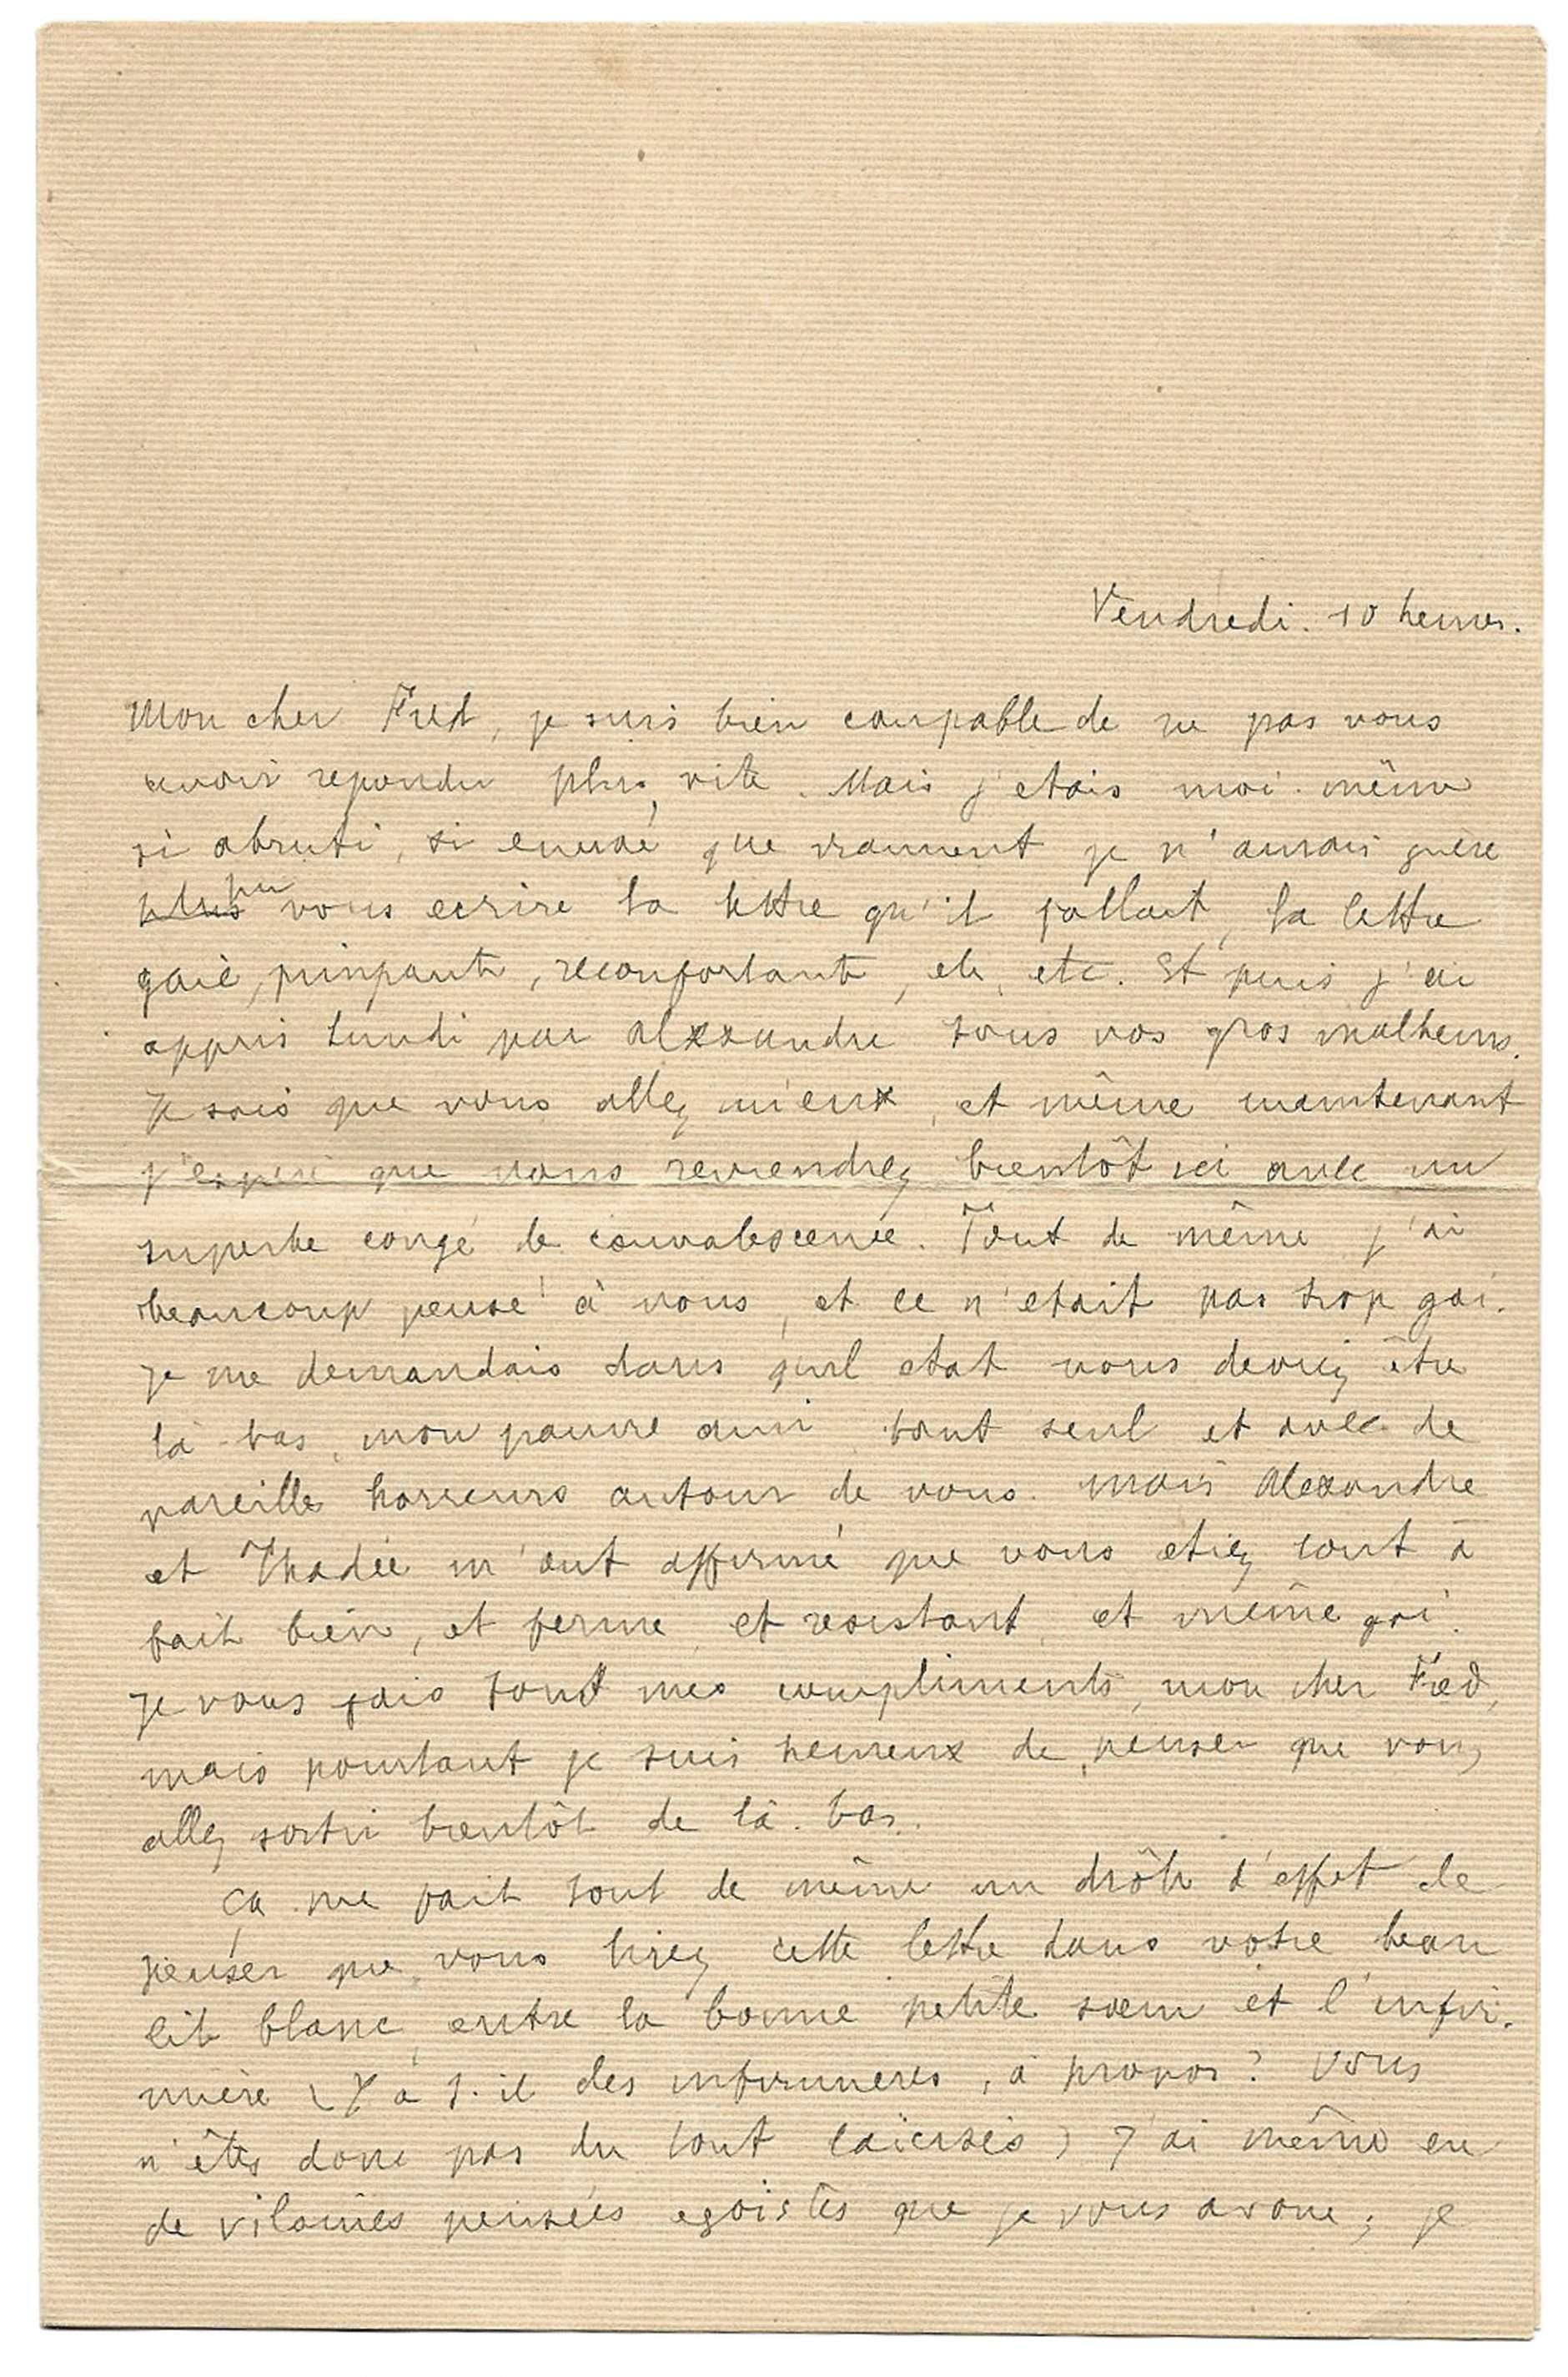 Vendredi. 10 heures.
Mon cher Fred, je suis bien coupable de ne pas vous
avoir repondu plus vite. Mais j'etais moi-même
si abruti, si enervé que vraiment je n'aurais guère
plus pu vous ecrire la lettre qu'il fallait, la lettre
gaie, pimpante, reconfortante, etc, etc. Et puis j'ai
appris lundi par Alexandre tous vos gros malheurs.
Je sais que vous allez mieux, et même maintenant
j'espere que vous reviendrez bientôt ici avec un
superbe congé de convalescence. Tout de même j'ai
beaucoup pensé à vous, et ce n'etait pas trop gai.
Je me demandais dans quel etat vous deviez être
là-bas, mon pauvre ami, tout seul et avec de
pareilles horreurs autour de vous. Mais Alexandre
et Thadée m'ont affirmé que vous etiez tout à
fait bien, et ferme, et resistant, et même gai.
Je vous fais tous mes compliments, mon cher Fred,
mais pourtant je suis heureux de penser que vous
allez sortir bientôt de là-bas.
Ça me fait tout de même un drôle d'effet de
penser que vous lirez cette lettre dans votre beau
lit blanc, entre la bonne petite sœur et l'infir-
mière (Y a-t-il des infirmieres, à propos? Vous
n'êtes donc pas du tout laïcisés) J'ai même eu
de vilaines pensées egoistes que je vous avoue; je